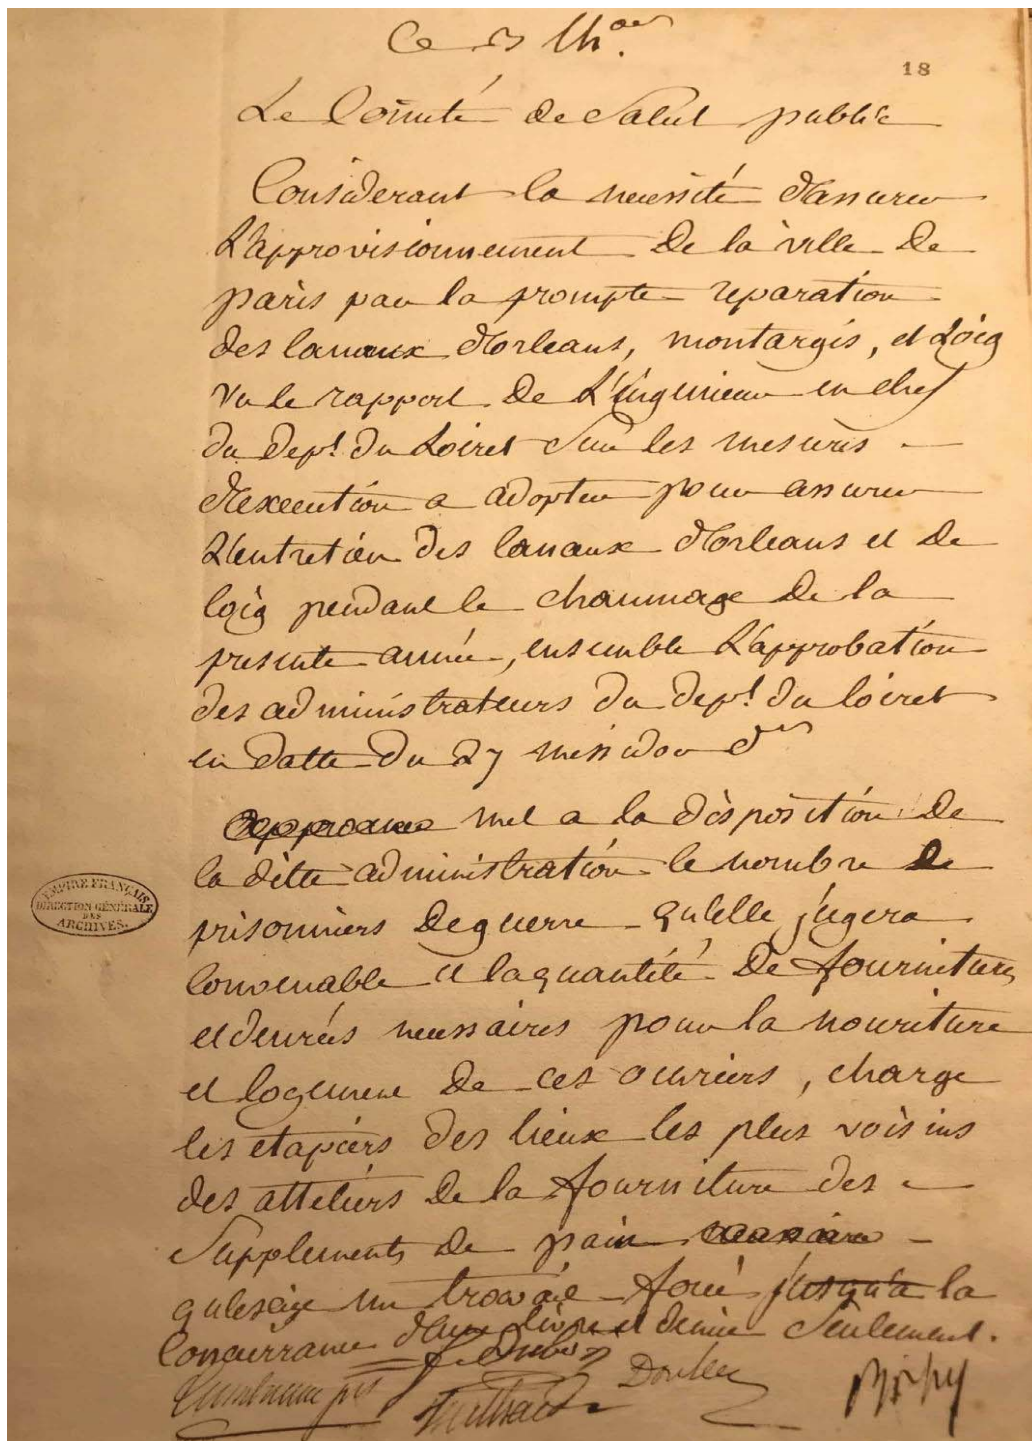 Ce 3 th.or
18
Le Comité de Salut public
Considerant la necessité d'assurer
L'approvisionnement de la ville de
paris par la prompte reparation
des canaux d'orleans, montargis, et Loig
Vu le rapport de L'ingenieur en chef
du dept. du Loiret Sur les mesures
d'execution a adopter pour assurer
L'entretien des canaux d'orleans et de
loig pendant le chaumage de la
presente année, ensemble L'approbation
des administrateurs du dept. du loiret
en datte du 27 messidor d.er
met a la disposition de
la ditte administration le nombre de
prisonniers de guerre qu'elle jugera
convenable et la quantité de fournitures
et denrées necessaires pour la nouriture
et logement de ces ouvriers, charge
les etapiers des lieux les plus voisins
des atteliers de la fourniture des
Supplements de pain
qu'exige un travail forcé jusqu'a la
concurrance d'une livre et demie Seulement.
EMPIRE FRANÇAIS
DIRECTION GÉNÉRALE
DES
ARCHIVES.